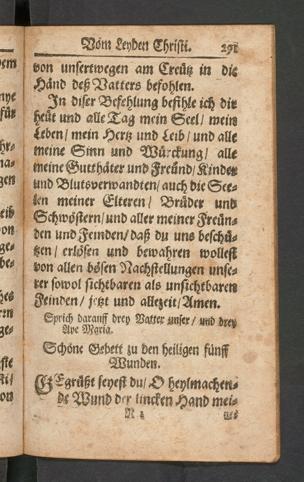 Vom Leyden Christi. 291
von unsertwegen am Creütz in die
Händ deß Vatters befohlen.
In diser Befehlung befihle ich dir
heüt und alle Tag mein Seel/ mein
Leben/ mein Hertz und Leib/ und alle
meine Sinn und Würckung/ alle
meine Gutthäter und Freünd/ Kinder
und Blutsverwandten/ auch die See-
len meiner Elteren/ Brüder und
Schwöstern/ und aller meiner Freün-
den und Feinden/ daß du uns beschü-
tzen/ erlösen und bewahren wollest
von allen bösen Nachstellungen unse-
rer sowol sichtbaren als unsichtbaren
Feinden/ jetzt und allezeit/ Amen.
Sprich darauff drey Vatter unser/ und drey
Ave Maria.
Schöne Gebett zu den heiligen fünff
Wunden.
GEgrüßt seyest du/ O heylmachen-
de Wund der lincken Hand mei-
N 2 nes